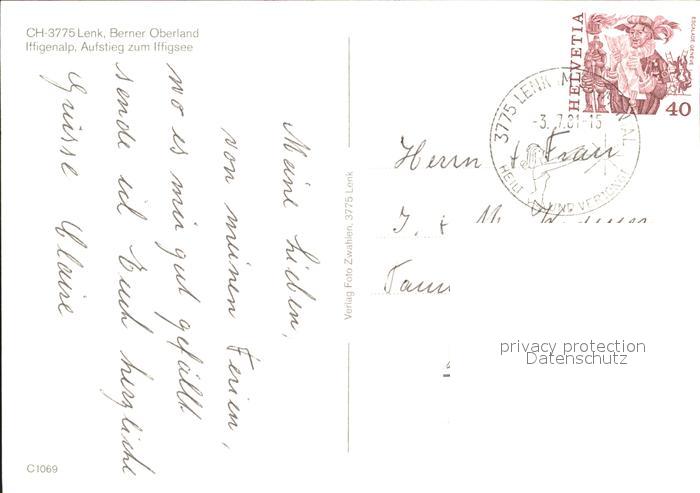 CH-3775 Lenk, Berner Oberland
Iffigenalp, Aufstieg zum Iffigsee
Meine Lieben,
von meinen Ferien,
wo es mir gut gefällt
sende ich Euch herzliche
Grüsse Claire
Verlag Foto Zwahlen, 3775 Lenk
HELVETIA
ESCALADE GENÈVE
40
3775 LENK IM SIMMENTAL
-3.7.81-15
HEILT UND VERJÜNGT
Herrn + Frau
J. + M.
privacy protection
Datenschutz
C1069